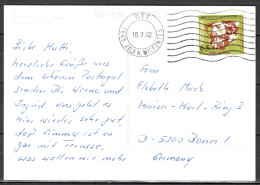 CTT
10.7.92
65
Liebe Mutti,
herzliche Grüße aus
dem schönen Portugal
senden Dir Werner und
Ingrid. Uns geht es
hier wieder sehr gut,
das Zimmer ist
gar mit Terrasse,
was wollen wir mehr
Frau
Elsbeth Much
D-5300 Bonn 1
Germany